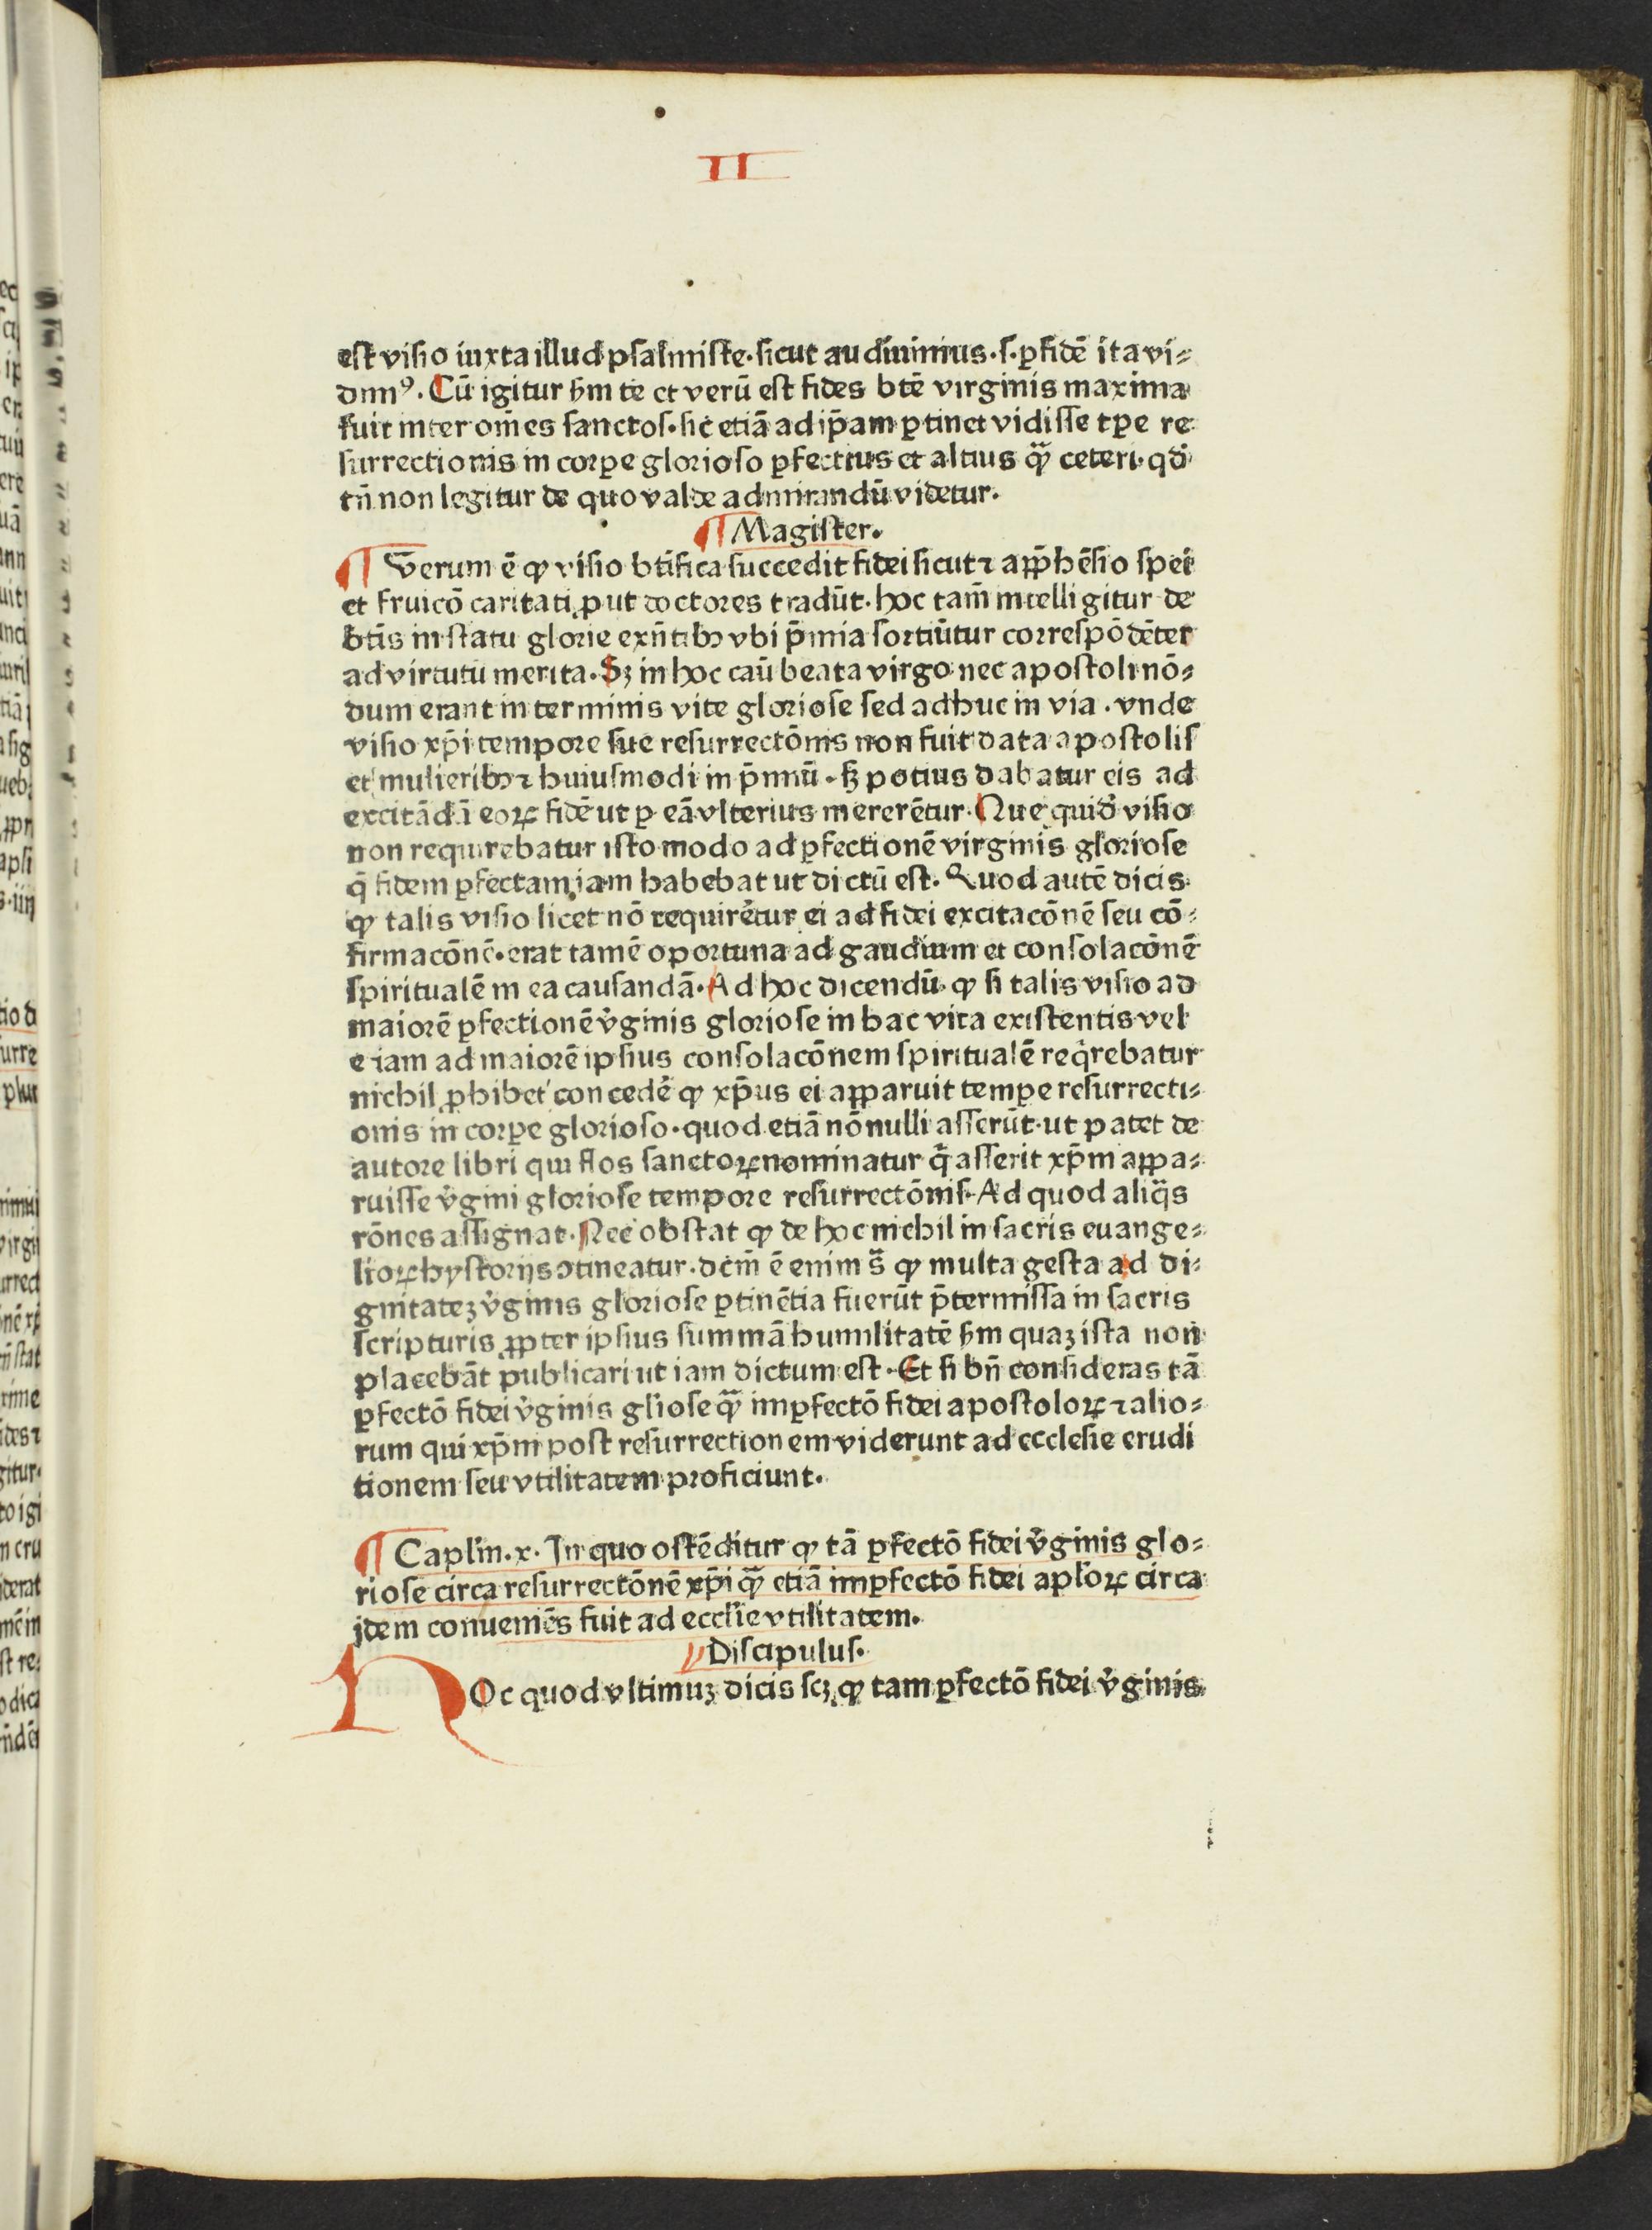 II
est visio iuxta illud psalmiste·sicut audiuimus·s·ꝑ fidē ita vi⸗
dimꝰ·Cū igitur ẜm te et verū est fides btē virginis maxima
fuit inter om̄es sanctos·sic etiā ad ip̄am ꝑtinet vidisse tꝑe re
surrectionis in corꝑe glorioso ꝑfectius et altius qͣꝫ ceteri·qd̄
tn̄ non legitur de quo valde admirandū videtur·
¶ Magister·
¶ Verum ē ꝙ visio btīfica succedit fidei sicut ⁊ app̄hēsio spei
et fruicō caritati ꝓut doctores tradūt·hoc tam̄ intelligitur de
btīs in statu glorie exn̄tibꝫ vbi p̄mia sortiūtur correspōdēter
ad virtutū merita·Sꝫ in hoc caū beata virgo nec apostoli nō⸗
dum erant in terminis vite gloriose sed adhuc in via·vnde
visio xp̄i tempore sue resurrectōnis non fuit data apostolis
et mulieribꝫ ⁊ huiusmodi in p̄miū·sꝫ potius dabatur eis ad
excitādā eoꝝ fidē ut ꝑ eā vlterius mererētur·Que quid̄ visio
non requirebatur isto modo ad ꝑfectionē virginis gloriose
q̄ fidem ꝑfectam iam habebat ut dictū est·Quod autē dicis
ꝙ talis visio licet nō requireretur ei ad fidei excitacōnē seu cō⸗
firmacōnē·erat tamē oportuna ad gaudium et consolacōnē
spiritualē in ea causandā·Ad hoc dicendū·ꝙ si talis visio ad
maiorē ꝑfectionē v̓ginis gloriose in hac vita existentis vel
eciam ad maiorē ipsius consolacōnem spiritualē reqͥrebatur
nichil ꝓhibet concedē ꝙ xp̄us ei apparuit tempe resurrecti⸗
onis in corꝑe glorioso·quod etiā nōnulli asserūt·ut patet de
autore libri qui flos sanctoꝝ nominatur qͥ asserit xp̄m appa⸗
ruisse v̓gini gloriose tempore resurrectōnis·Ad quod aliqͣs
rōnes assignat·Nec obstat ꝙ de hoc nichil in sacris euange⸗
lioꝝ hystorijs ↄtineatur·dcm̄ ē enim sͣ ꝙ multa gesta ad di⸗
gnitateꝫ v̓ginis gloriose ꝑtinētia fuerūt p̄termissa in sacris
scripturis ꝓpter ipsius summā humilitatē ẜm quaꝫ ista non
placebāt publicari ut iam dictum est·Et si bn̄ consideras tā
ꝑfectō fidei v̓ginis gl̓iose qͣꝫ imꝑfectō fidei apostoloꝝ ⁊ alio⸗
rum qui xp̄m post resurrectionem viderunt ad ecclesie erudi
tionem seu vtilitatem proficiunt·
¶ Caplm̄·x·In quo ostēditur ꝙ tā ꝑfectō fidei v̓ginis glo⸗
riose circa resurrectōnē xp̄i qͣꝫ etiā imꝑfectō fidei apl̓oꝝ circa
idem conueniēs fuit ad eccl̓ie vtilitatem·
Discipulus·
HOc quod vltimuꝫ dicis scꝫ ꝙ tam ꝑfectō fidei v̓ginis